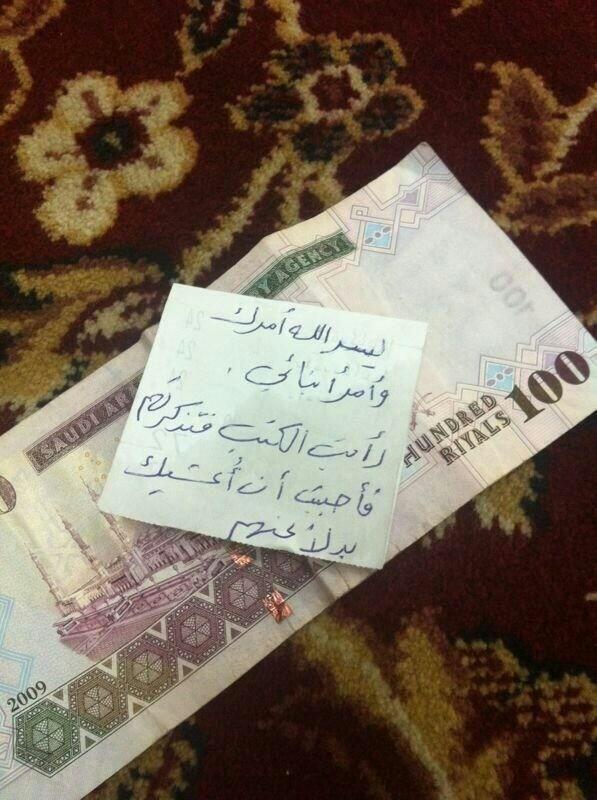 ليسر الله أمرك
وأمر أبنائي .
رأيت الكتب فتذكرتهم
فأحببت أن أعشيك
بدلاً عنهم
Y AGENCY
SAUDI AR
HUNDRED
RIYALS
100
100
2009